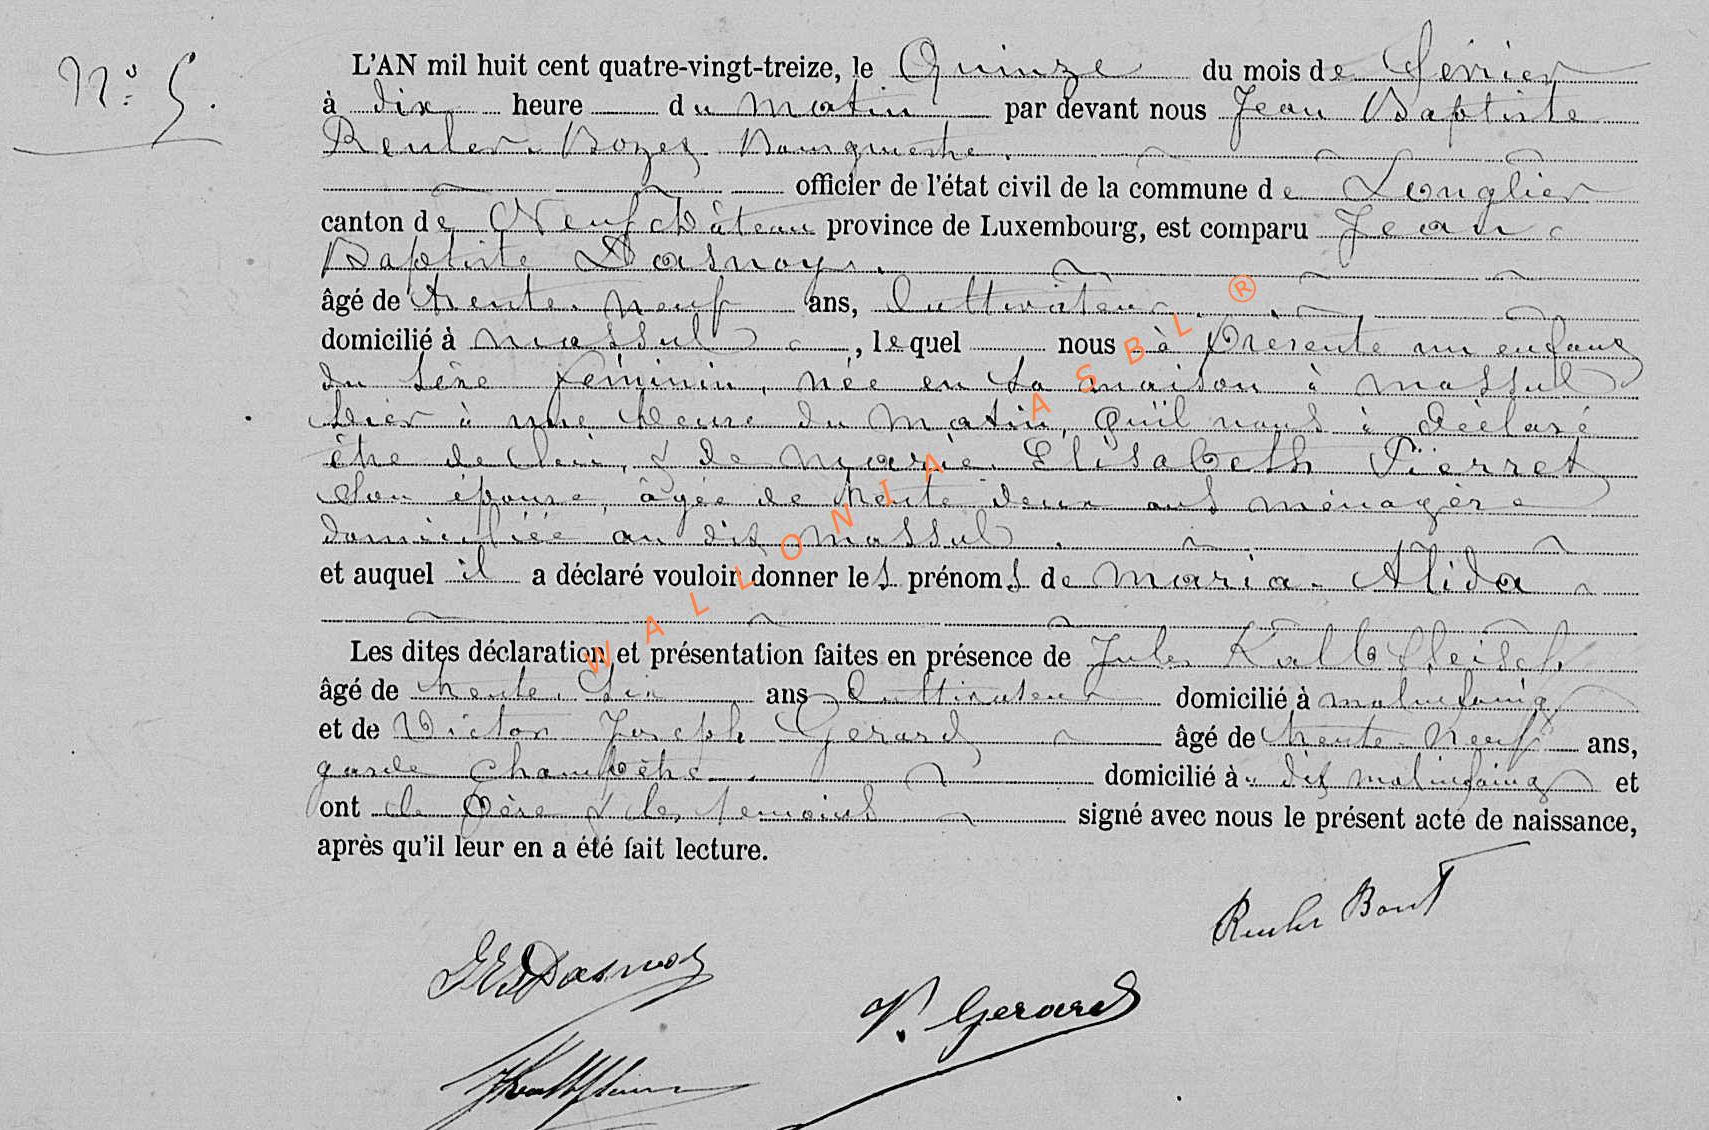 N° 5.
L'AN mil huit cent quatre-vingt-treize, le Quinze du mois de Février
à dix heure du matin par devant nous Jean Baptiste
Reuler Bourgmestre.
officier de l'état civil de la commune de Longlier
canton de Neufchâteau province de Luxembourg, est comparu Jean
Baptiste Dasnoy.
âgé de trente neuf ans, Cultivateur
domicilié à Massul, lequel nous à présenté un enfant
du sèxe féminin, née en sa maison à Massul
hier à une heure du matin, qu'il nous à déclaré
être de lui, & de Marie Elisabeth Pierret
son épouse, âgée de trente deux ans ménagère
domiciliée au dit Massul.
et auquel il a déclaré vouloir donner les prénoms de Maria-Alida
Les dites déclaration et présentation faites en présence de Jules Kalbfleisch
âgé de trente six ans Cultivateur domicilié à Molinfaing
et de Victor Joseph Gerard âgé de trente neuf ans,
garde champêtre domicilié à dit Molinfaing et
ont le père & les temoins signé avec nous le présent acte de naissance,
après qu'il leur en a été fait lecture.
Reuler
Dasnoy
V. Gerard
WALLONIA ASBL ®